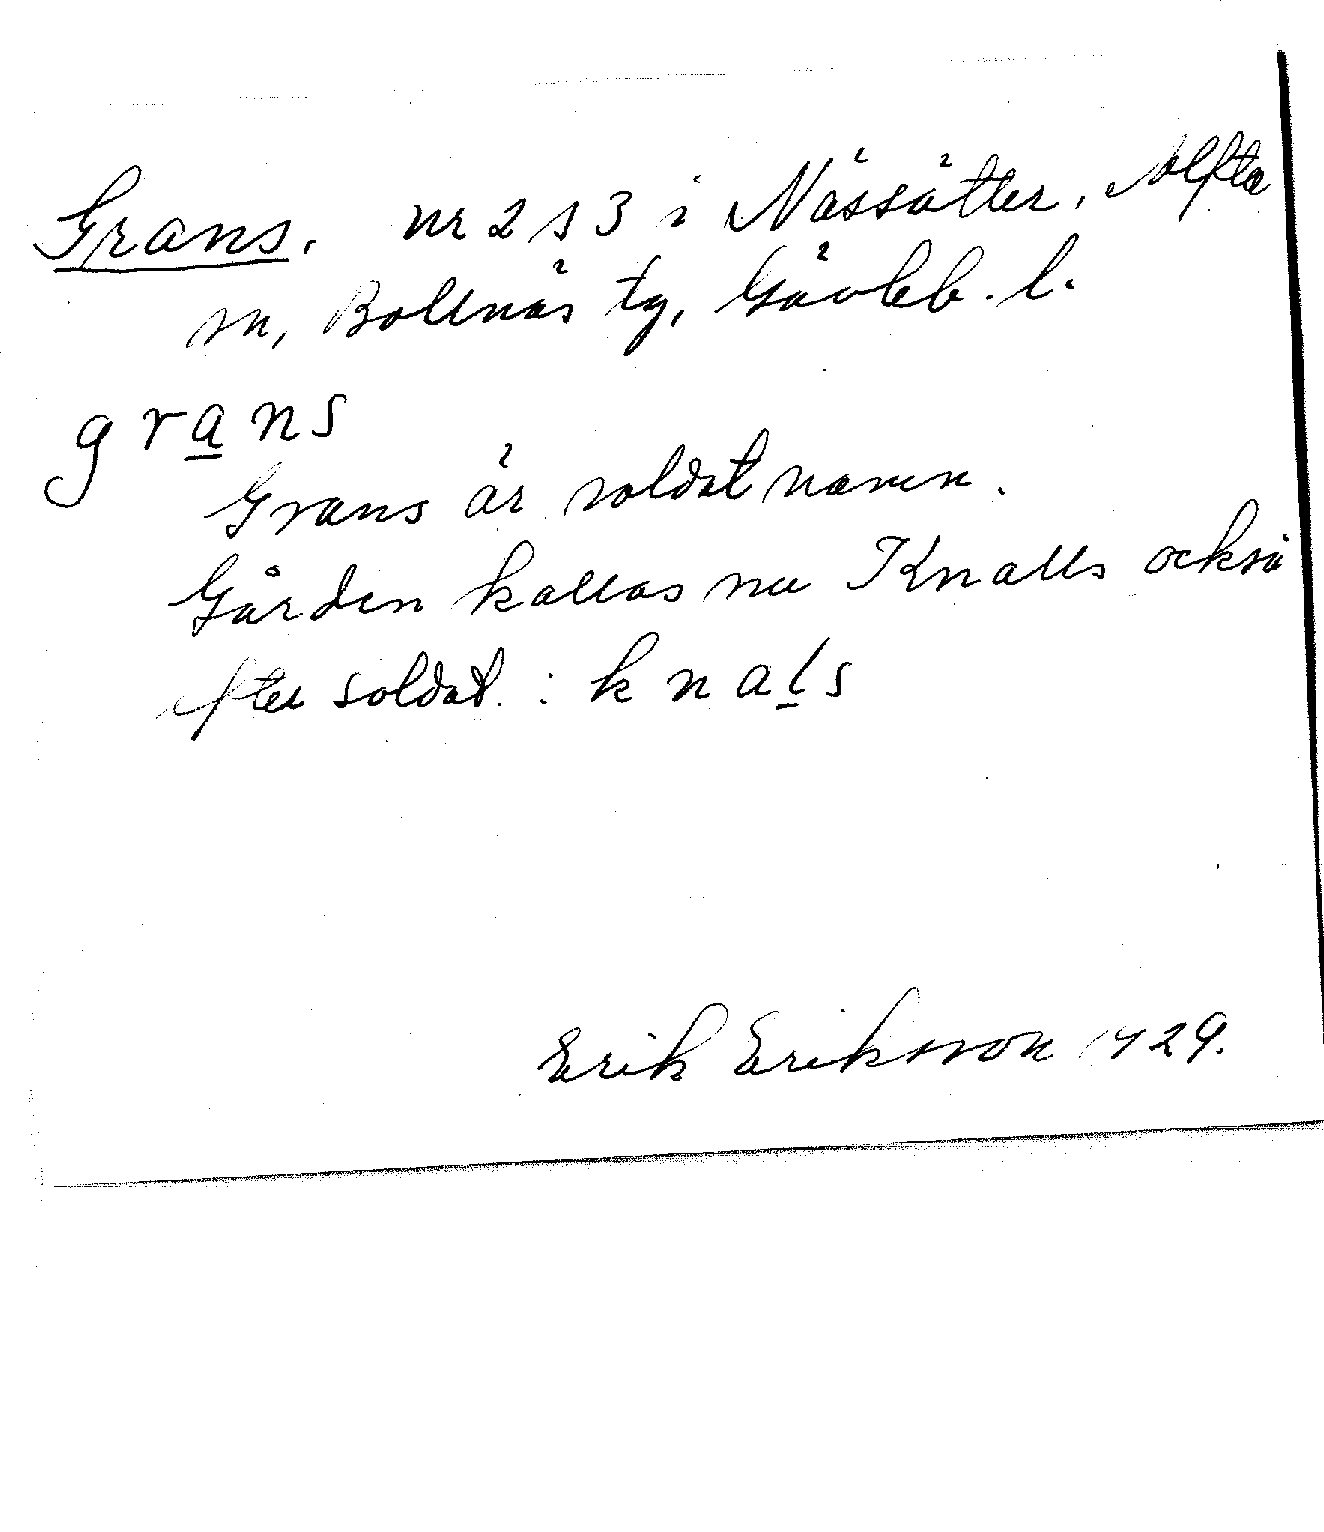 Grans. nr 2 s 3 i Nässätter, Alfta
sn, Bollnäs tg, Gävleb. l.
grans
Grans är soldatnamn.
Gården kallas nu Knalls också
efter soldat : knals
Erik Eriksson 1929.